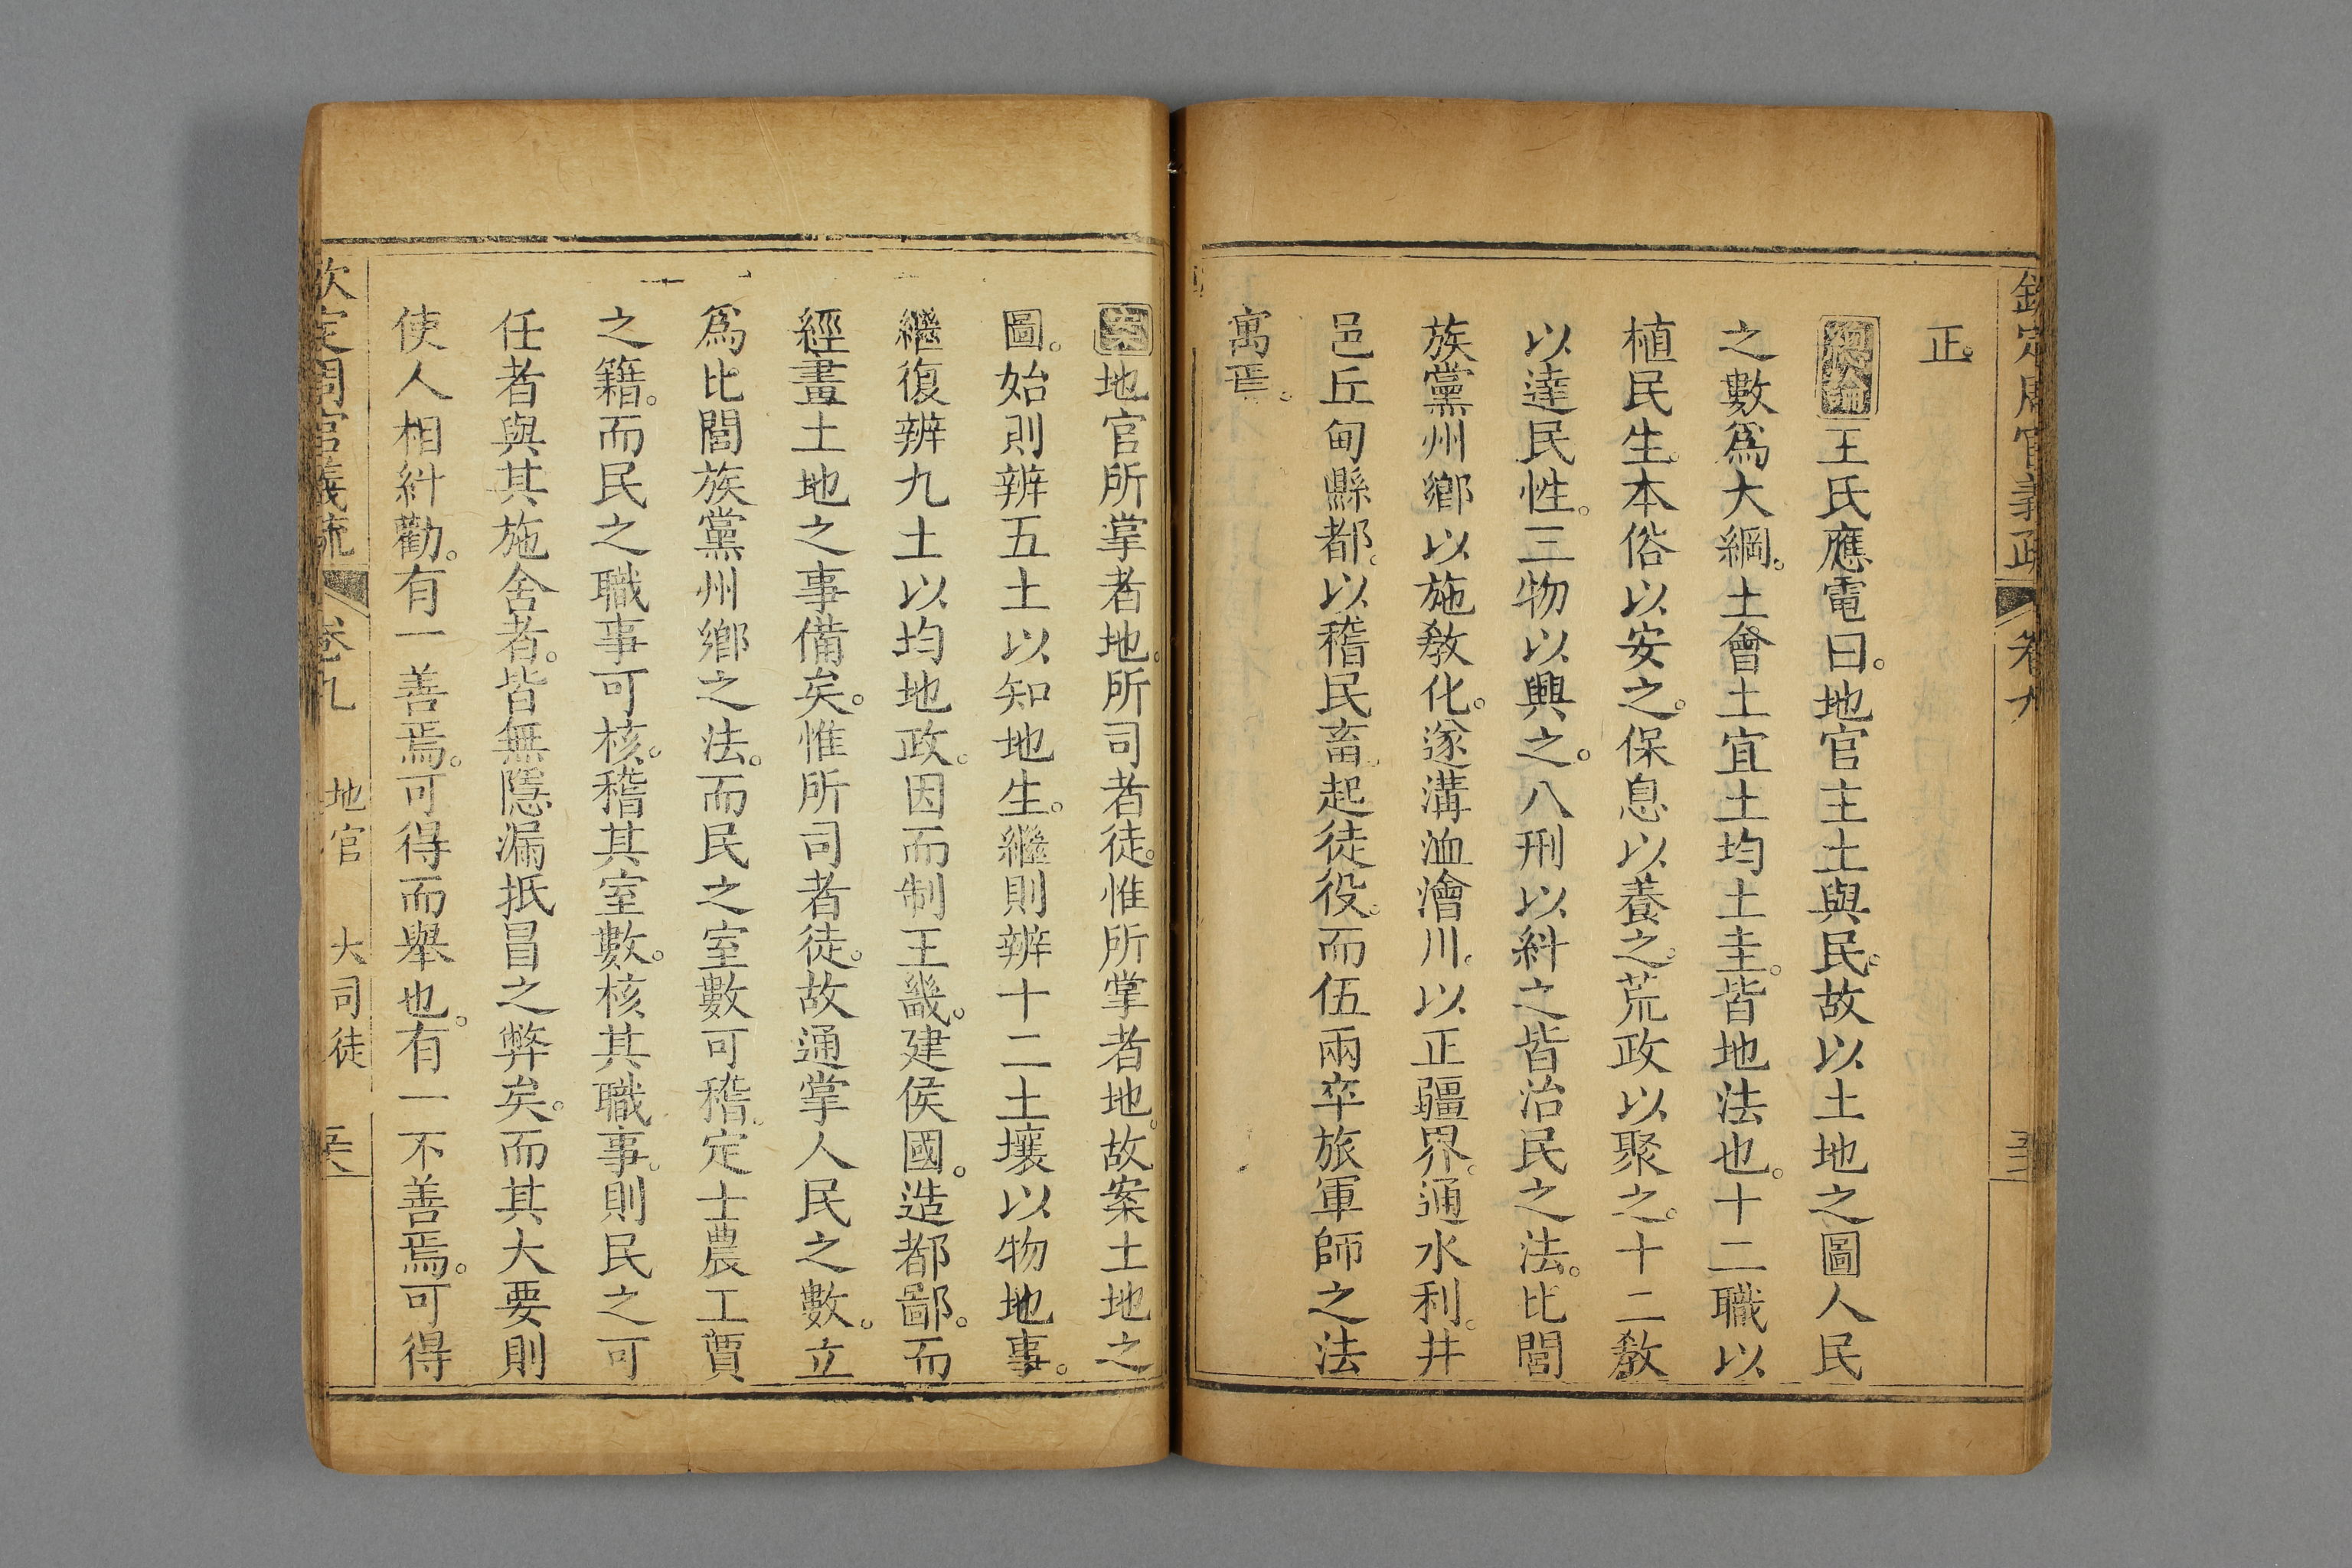 欽定周官義疏 卷九
正。
總論王氏應電曰。地官主土與民。故以土地之圖人民
之數爲大綱。土會土宜土均土圭。皆地法也。十二職以
植民生。本俗以安之。保息以養之。荒政以聚之。十二敎
以達民性。三物以興之。八刑以糾之。皆治民之法。比閭
族黨州鄉以施敎化。遂溝洫澮川。以正疆界。通水利。井
邑丘甸縣都。以稽民畜。起徒役。而伍兩卒旅軍師之法
寓焉。
案地官所掌者地。所司者徒。惟所掌者地。故案土地之
圖。始則辨五土以知地生。繼則辨十二土壤以物地事。
繼復辨九土以均地政。因而制王畿。建侯國。造都鄙。而
經畫土地之事備矣。惟所司者徒。故通掌人民之數。立
爲比閭族黨州鄉之法。而民之室數可稽。定士農工賈
之籍。而民之職事可核。稽其室數。核其職事。則民之可
任者與其施舍者。皆無隱漏抵冒之弊矣。而其大要則
使人相糾勸。有一善焉。可得而舉也。有一不善焉。可得
欽定周官義疏 卷九 地官 大司徒